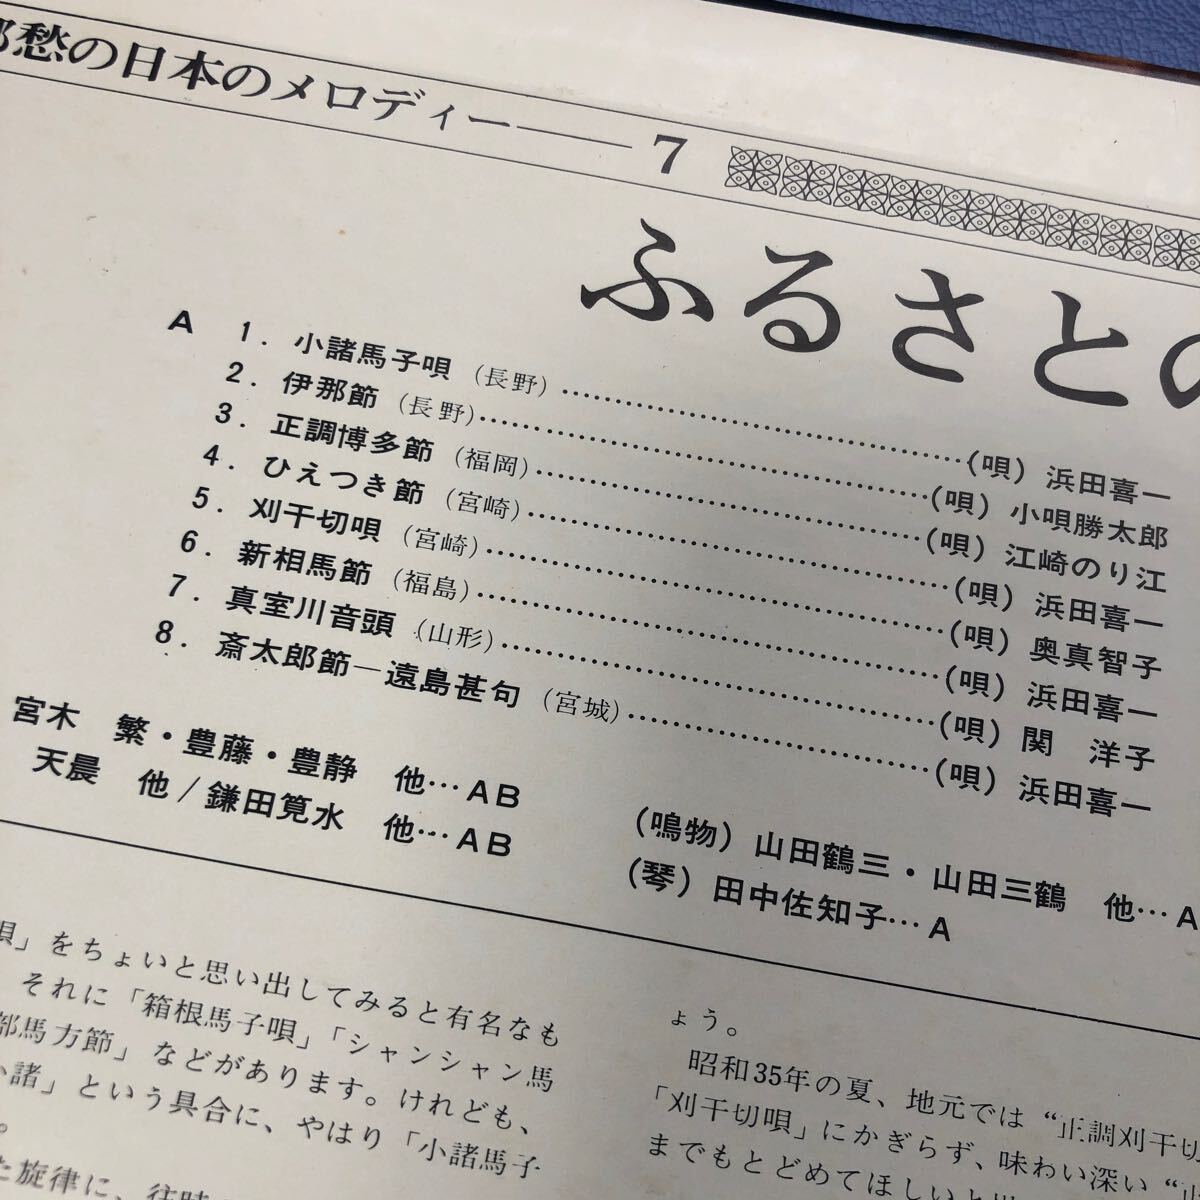 愁の日本のメロディー——7
ふるさとの
A 1. 小諸馬子唄 (長野)……(唄) 浜田喜一
2. 伊那節 (長野)……(唄) 小唄勝太郎
3. 正調博多節 (福岡)……(唄) 江崎のり江
4. ひえつき節 (宮崎)……(唄) 浜田喜一
5. 刈干切唄 (宮崎)……(唄) 奥真智子
6. 新相馬節 (福島)……(唄) 浜田喜一
7. 真室川音頭 (山形)……(唄) 関 洋子
8. 斎太郎節—遠島甚句 (宮城)……(唄) 浜田喜一
宮木 繁・豊藤・豊静 他…AB
天晨 他/鎌田筧水 他…AB
(鳴物) 山田鶴三・山田三鶴 他…A
(琴) 田中佐知子…A
唄」をちょいと思い出してみると有名なも
それに「箱根馬子唄」「シャンシャン馬
部馬方節」などがあります。けれども、
小諸」という具合に、やはり「小諸馬子
。
た旋律に、往時
ょう。
昭和35年の夏、地元では“正調刈干切
「刈干切唄」にかぎらず、味わい深い“正
までもとどめてほしいと思